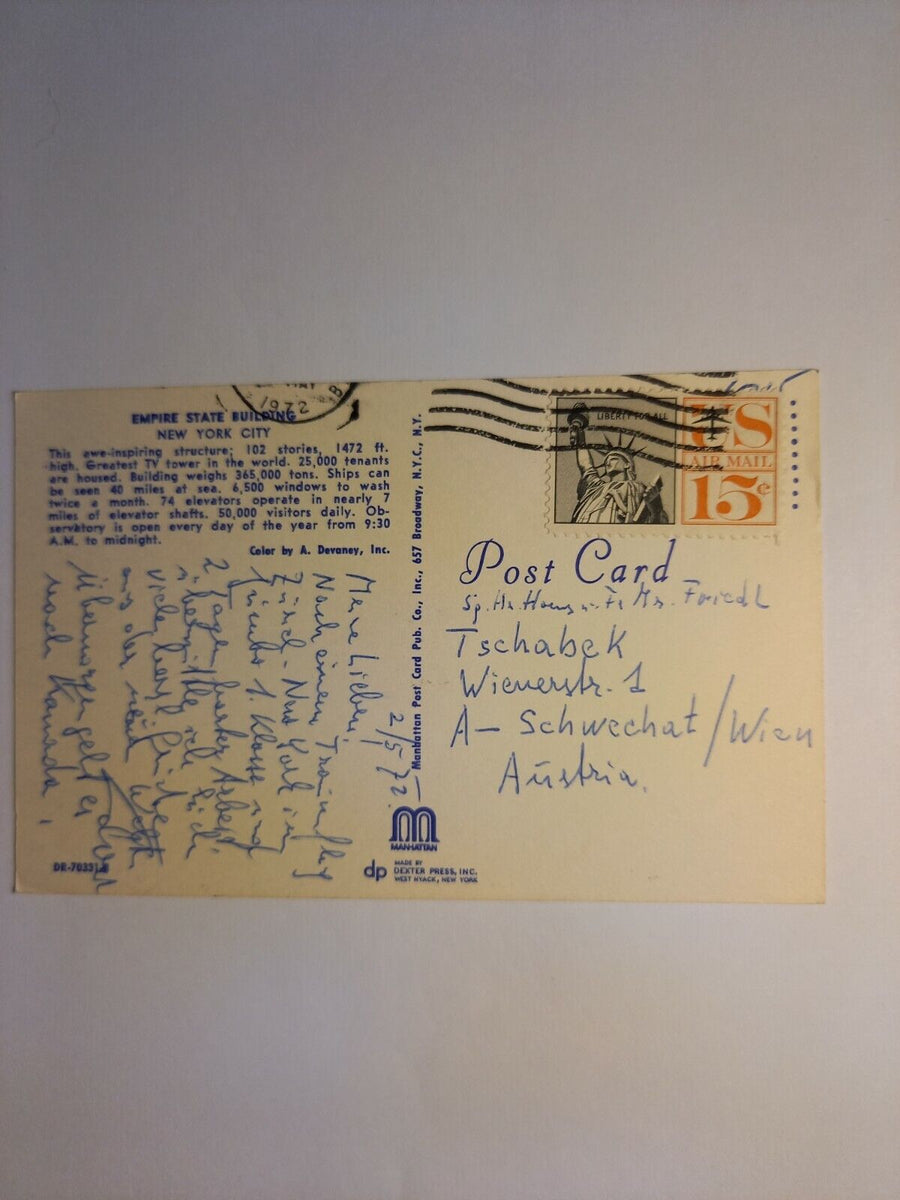 MAY
1972
EMPIRE STATE BUILDING
NEW YORK CITY
This awe-inspiring structure; 102 stories, 1472 ft.
high. Greatest TV tower in the world. 25,000 tenants
are housed. Building weighs 365,000 tons. Ships can
be seen 40 miles at sea. 6,500 windows to wash
twice a month. 74 elevators operate in nearly 7
miles of elevator shafts. 50,000 visitors daily. Ob-
servatory is open every day of the year from 9:30
A.M. to midnight.
Color by A. Devaney, Inc.
2/5/72.
Meine Lieben,
Nach einem
Zürich - New York in
1. Klasse und
2 Tagen harter Arbeit
viele herzl.
aus der neuen Welt
Übermorgen geht es
nach Kanada.
DR-70331
Manhattan Post Card Pub. Co., Inc., 657 Broadway, N.Y.C., N.Y.
MANHATTAN
dp MADE BY
DEXTER PRESS, INC.
WEST NYACK, NEW YORK
LIBERTY FOR ALL
US
AIR MAIL
15¢
Post Card
Friedl
Tschabek
Wienerstr. 1
A- Schwechat/Wien
Austria.